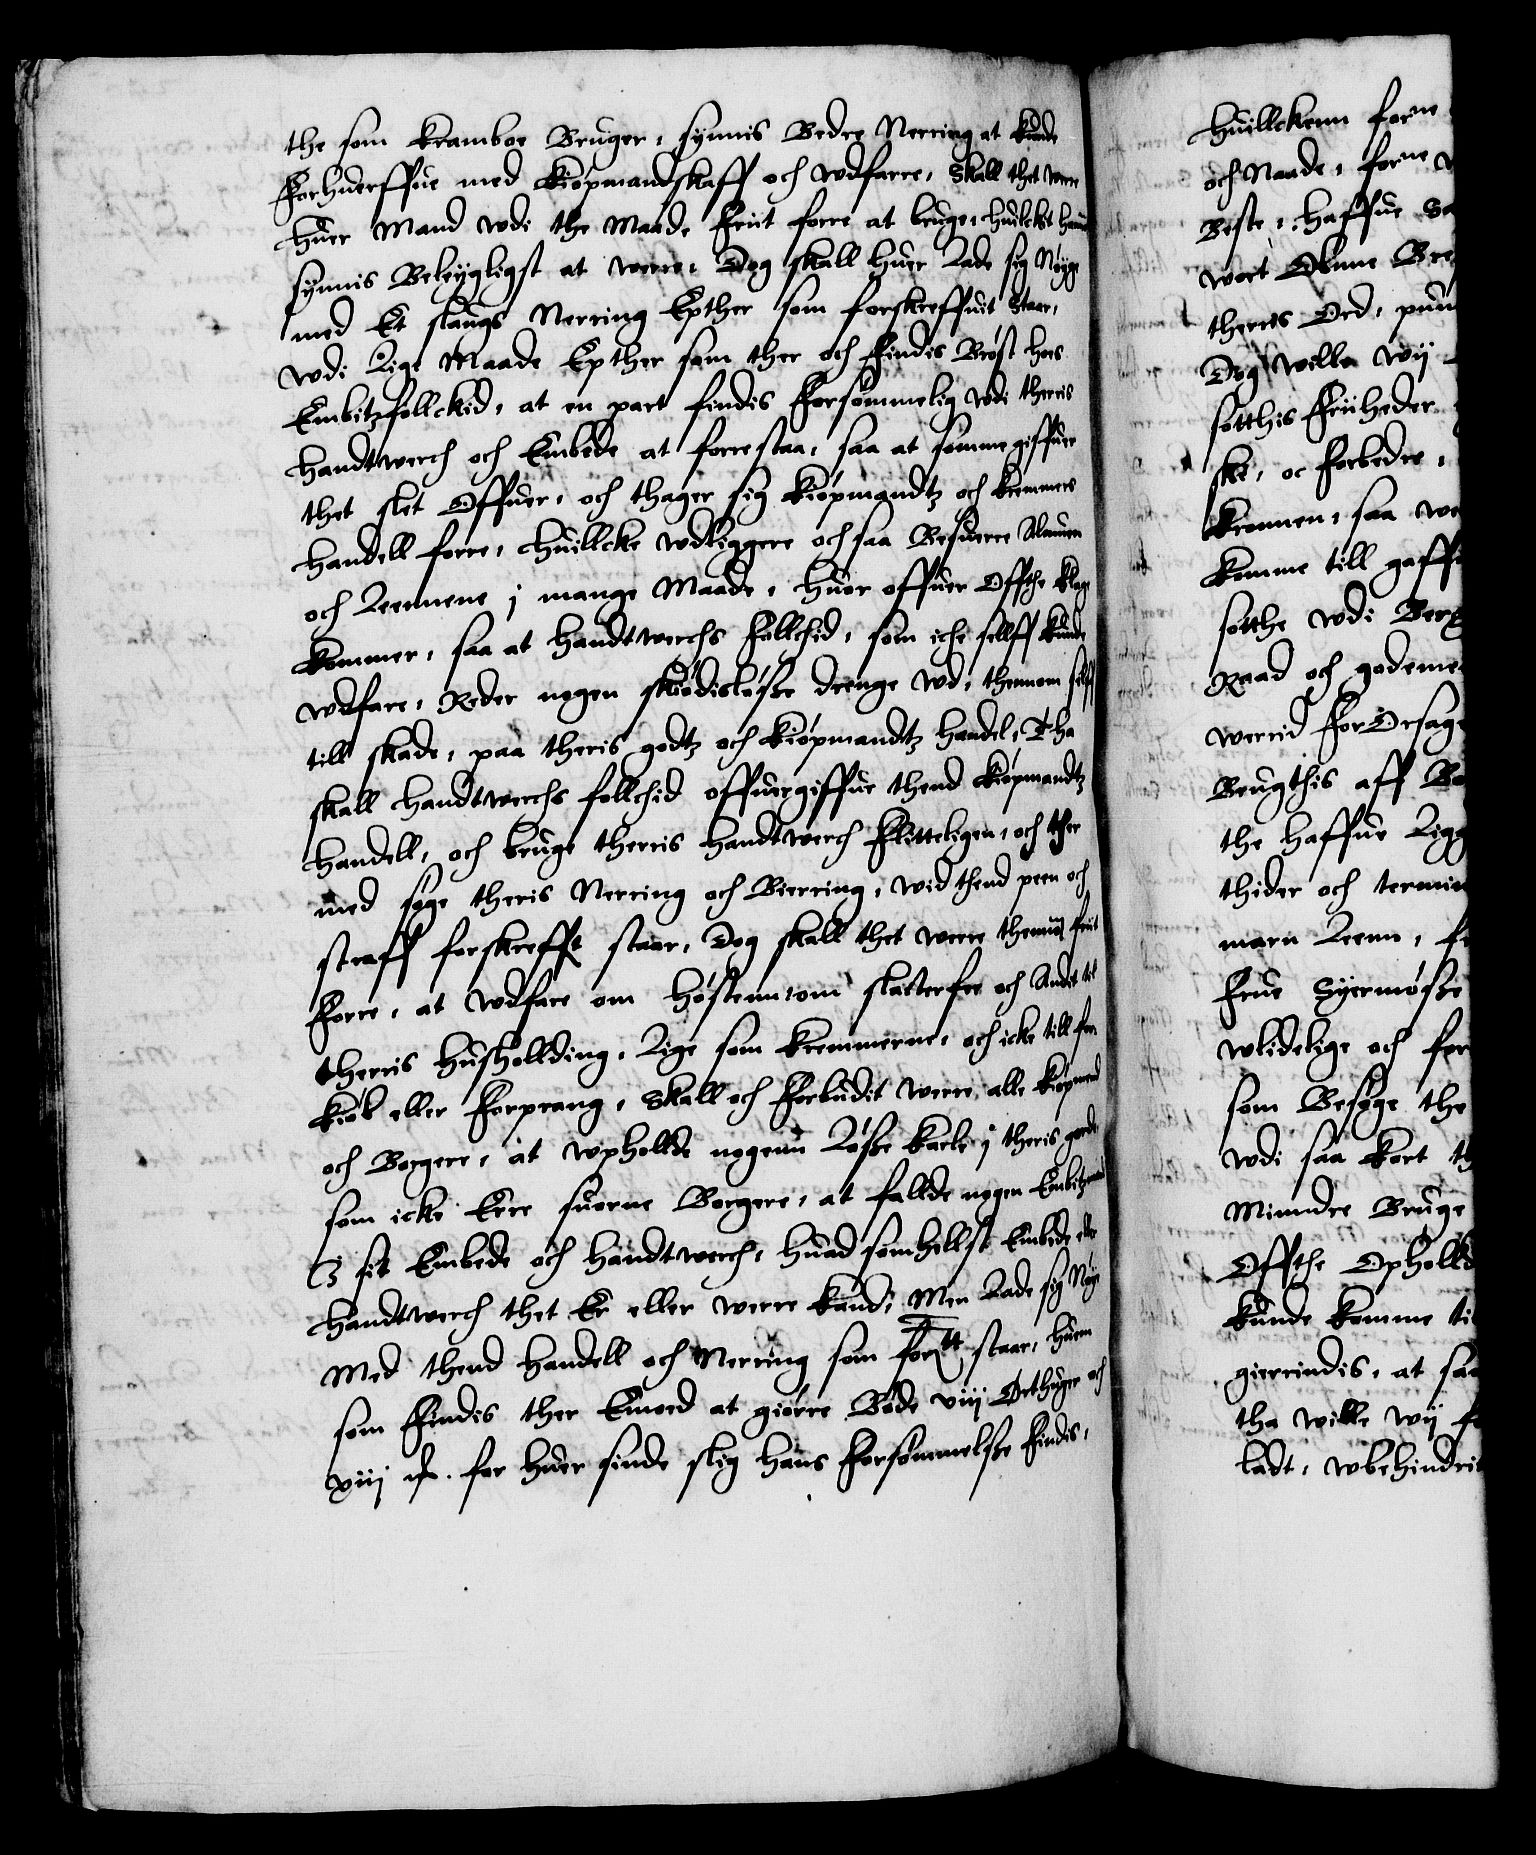 the som kramboe Bruger, synnis Bedre Nerring at kunde
Forhuerffue med kiøpmandskaff och wdfarre, Skall thet were
huer Mand wdi the Maade Friit forre at bruge, huilcket hannd
synnis Beleyligst at werre, Dog skall huer Lade sig Nøyge
med Et slaugs Nerring Epther som forskreffuit Staar,
wdi Lige Maade Epther som ther och Findis Brøst hoes
Embitzfollckid, at en part findis Forsømmelig wdi theris
handtwerch och Embede at forrestaa, saa at somme giffuer
thet slet Offuer, och thager sig kiøpmandtz och kremmers
handell forre, huillcke wdliggere och saa Besuerre Mannen
och Leennene j mange Maade, huor offuer Offthe klage
kommer, saa at handtwerchs Follchid, som iche sellff kunde
wdfare, Reder nogen skiødisløsse drenge wd, thennom sellff
till skade, paa theris godtz och kiøpmandtz handel, Tha
skall handtwerchs follchid offuergiffue thend kiøpmandtz
handell, och bruge therris handtwerch Flitteligen, och ther
med søge theris Nerring och Bierring, wid thend peen och
straff forskrefft staar, Dog skall thet were thennom friit
Forre, at wdfare om høstenn om slacterfee och Andet til
therris husholding, Lige som kremmerne, och icke till for
kiøb eller Forprang, Skall och Forbudit werre alle kiøpmend
och Borgere, at wphollde nogenn Løsse karle j theris gorde
som icke Erre suorne Borgere, at fallde nogen Embitzmand
J sit Embede och handtwerch, huad somhellst Embede eller
handtwerch thet Er eller werre kand, Men Lade sig Nøye
Med thend handell och Nerring som forsⁿ staar, huem
som Findis ther Emoed at giørre Bøde viij Ørthuger och
viij ß. for huer sinde slig hans Forsømmelsse Findis,
huillckenn forne
och Naade, forne
Beste, haffue
wort Obnne
theris Ord,
Dog wille wij
sotthis Friiheder
ske, oc Forbedre,
kronnen, saa
komme till
sotthe wdi
Raad och
werrid ForOrsage
Brugthis aff
the haffue
thider och
marn Leenn,
Frue
wlidelige och
som Besøge the
wdi saa kort
Minndre Bruge
Offthe
kunde komme
gierrindis, at saa
tha wille wij
ladt, wbehindrit